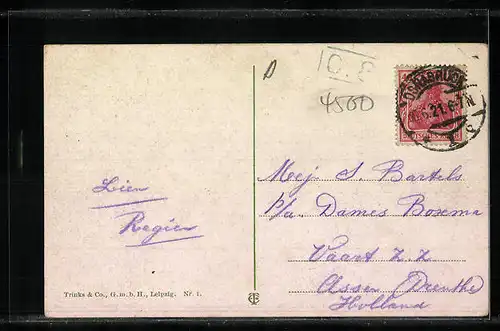 C. E
4500
OSNABRÜCK
.6.21.6-7N
Mej S. Bartels
p/a. Dames Boxema
Vaart Z.Z
Assen Drenthe
Holland
Lien
Regien
Trinks & Co., G. m. b. H., Leipzig. Nr. 1.